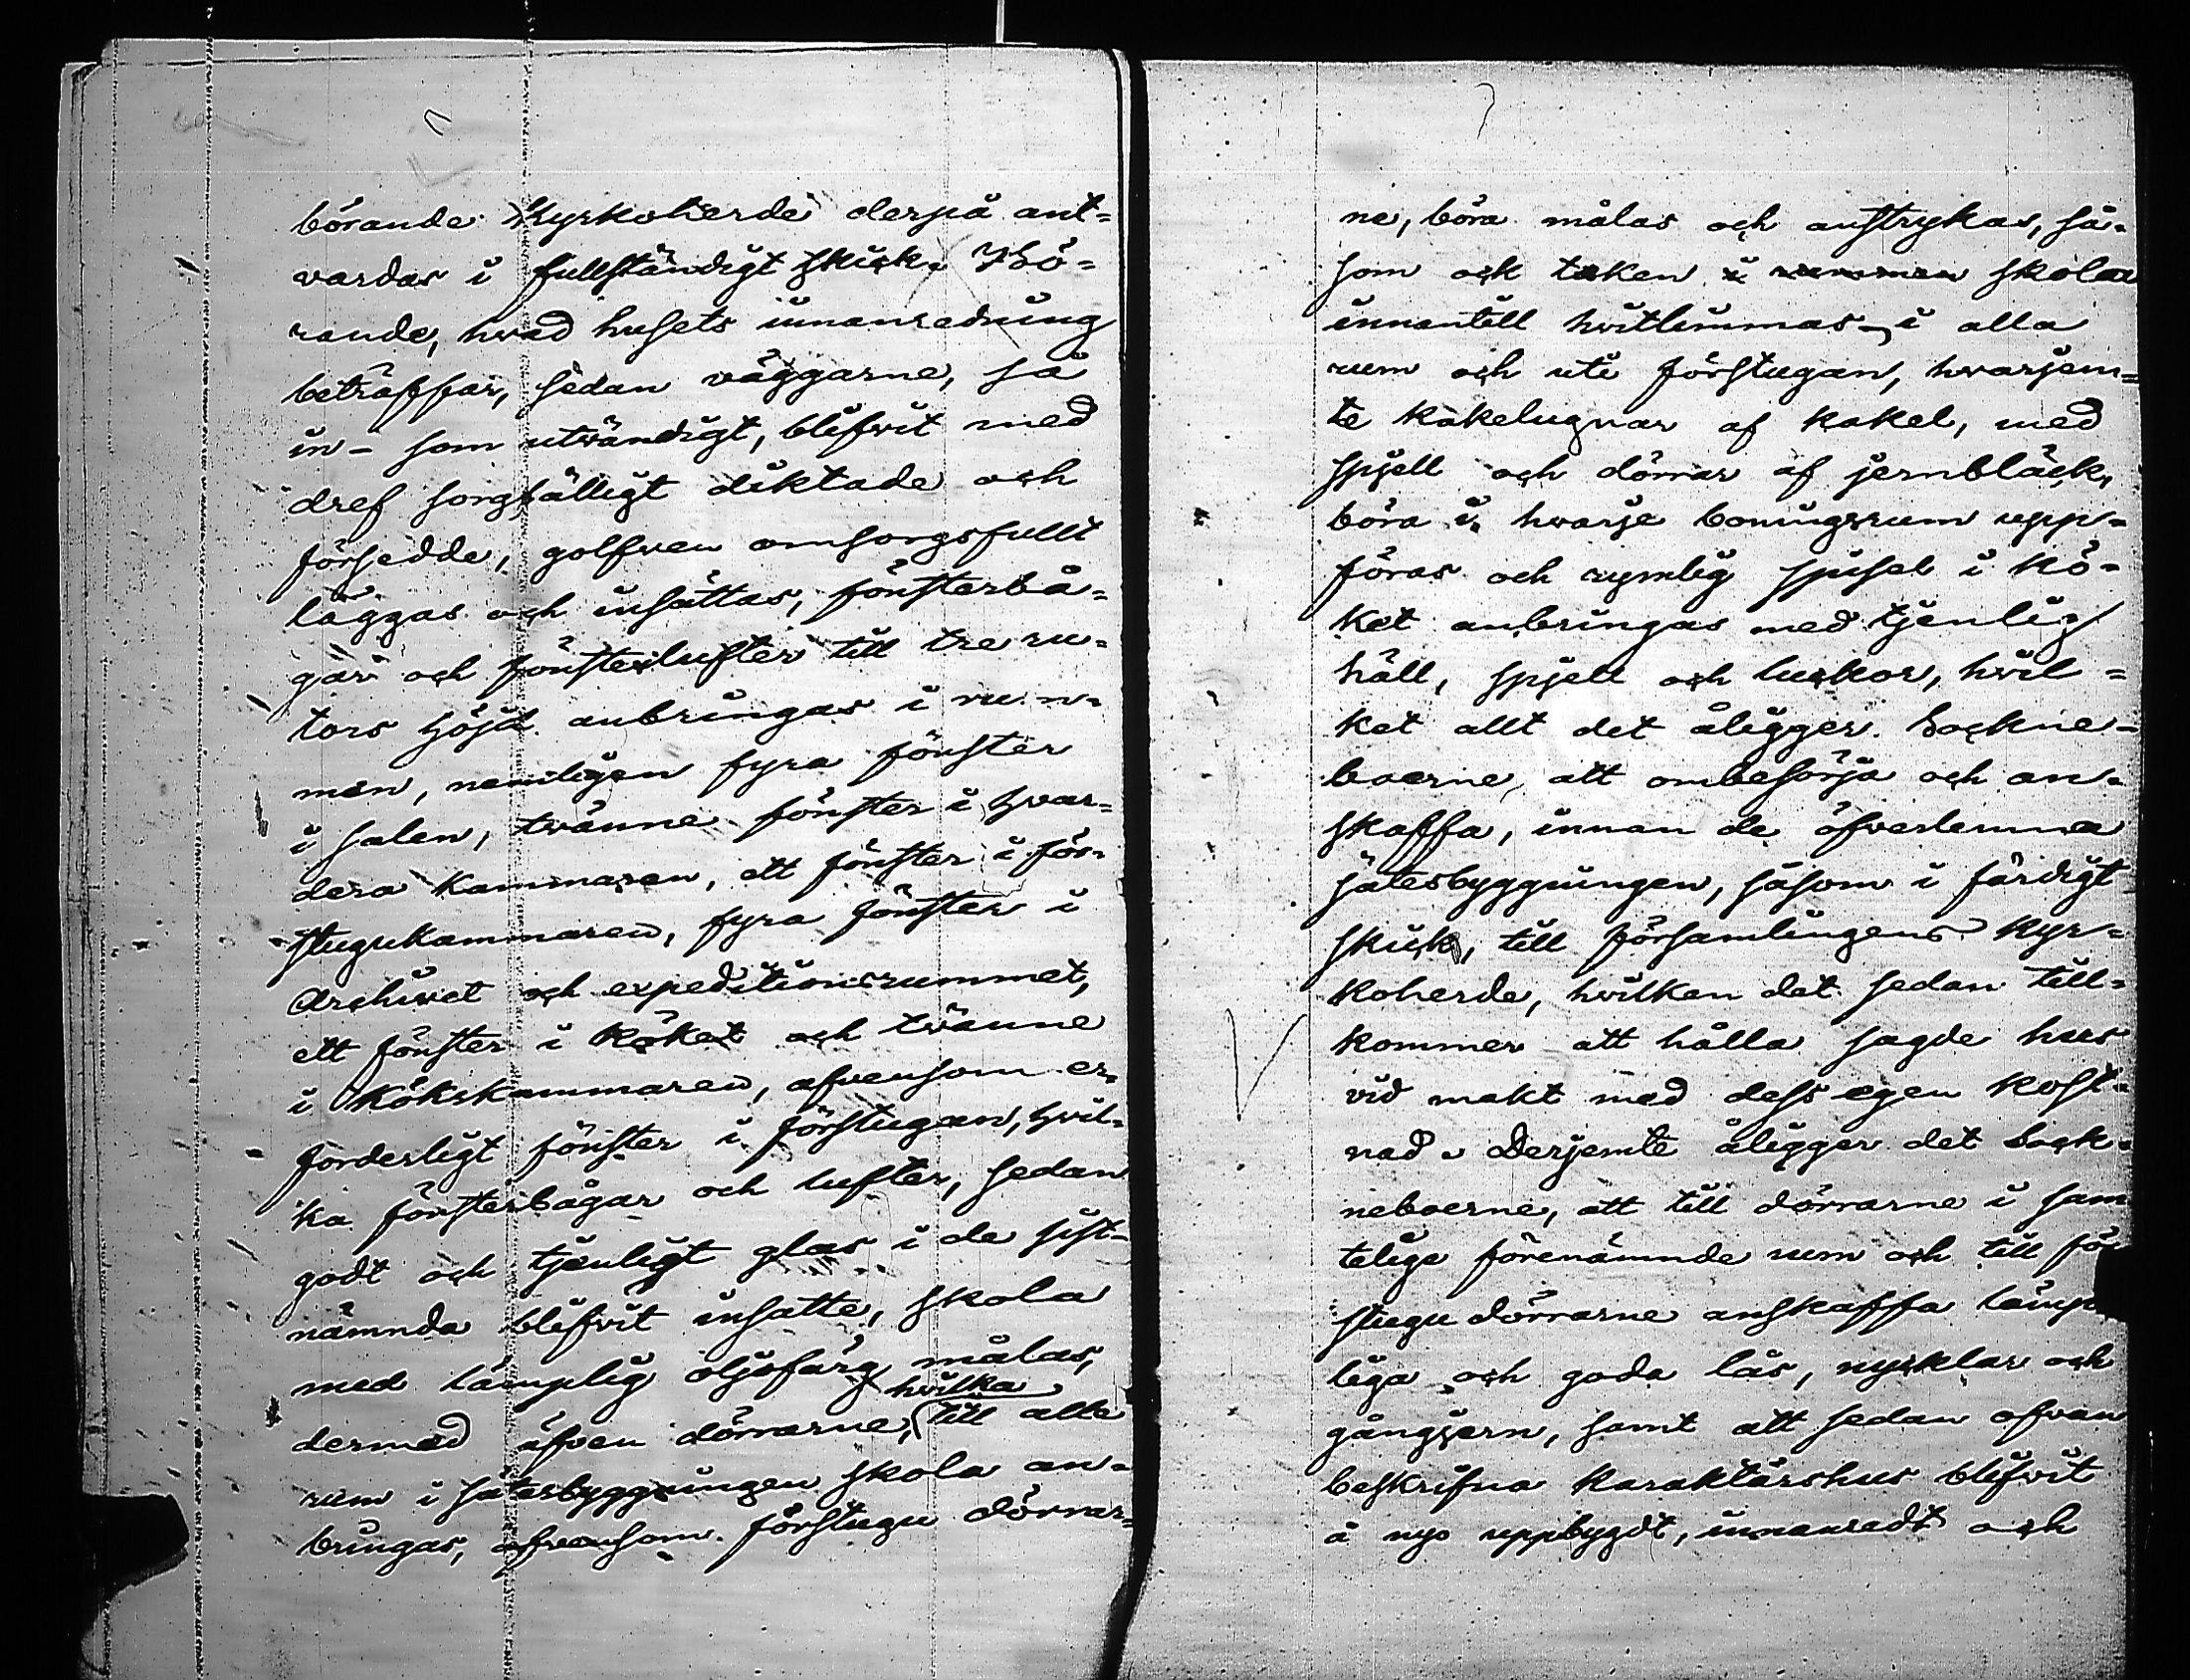 börande Kyrkoherde derpå ant=
vardas i fullständigt skick. Bö=
rande, hvad husets innanredning
beträffar, sedan väggarne, så
in- som utvändigt, blifvit med
dref sorgfälligt diktade och
försedde, golfven omsorgsfullt
läggas och insättas, fönsterbå=
gar och fönsterlufter till tre ru=
tors höjd anbringas i rum-
men, nemligen fyra fönster
i salen, tvänne fönster i hvar=
dera kammaren, ett fönster i för-
stugukammaren, fyra fönster i
Archivet och expeditionsrummet,
ett fönster i köket och tvänne
i kökskammaren, afvensom er-
forderligt fönster i förstugan, hvil-
ka fönsterbågar och lufter, sedan
godt och tjenligt glas i de sist-
nämnda blifvit insatte, skola
med lämplig oljefärg målas,
dermed äfven dörrarne, hvilka till alla
rum i sätesbyggningen skola an-
bringas, afvensom förstugu dörrar=
ne, böra målas och anstrykas, så-
som ock taken i rummen skola
innantill hvitlimmas i alla
rum och uti förstugan, hvarjem=
te kakelugnar af kakel, med
spjell och dörrar af jernbläck,
böra i hvarje boningsrum upp-
föras och rymlig spisel i kö-
ket anbringas med tjenlig
häll, spjell och luckor, hvil=
ket allt det åligger Sockne-
boerne, att ombesörja och an-
skaffa, innan de öfverlemna
sätesbyggningen, såsom i färdigt
skick, till församlingens Kyr=
koherde, hvilken det sedan till=
kommer att hålla sagde hus
vid makt med dess egen kost=
nad. Derjemte åligger det Sock-
neboerne, att till dörrarne i sam
telige förenämnde rum och till för
stugu dörrarne anskaffa lämp
liga och goda lås, nycklar och
gångjern, samt att sedan ofvan
beskrifna karaktärshus blifvit
å nyo uppbygdt, innanredt och